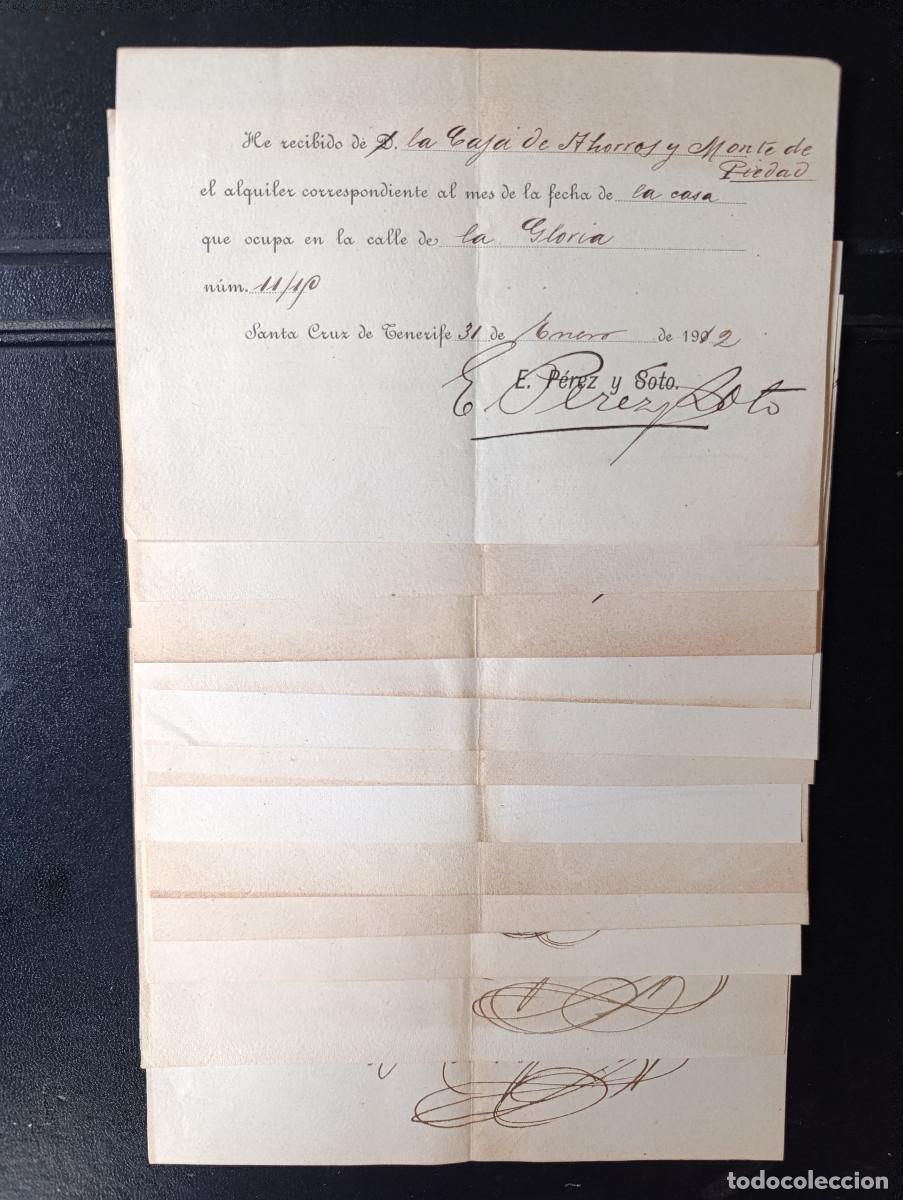 He recibido de D. la Caja de Ahorros y Monte de
Piedad
el alquiler correspondiente al mes de la fecha de la casa
que ocupa en la calle de la Gloria
núm.
Santa Cruz de Tenerife 31 de Enero de 1912
E. Pérez y Soto.
E Perez y Soto
todocoleccion